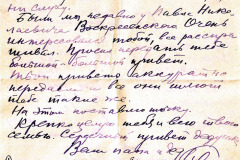 ни службу.
Были мы недавно у Павла Нико-
лаевича Воскресенского Очень
интересовался тобой, все расспра
шивал. Просил передать тебе
большой-большой привет.
Твои приветы аккуратно
передали и все они шлют
тебе такие же.
На этом поставлю точку.
Крепко целую тебя и всю твою
семью. Сердечный привет
Ваш папа и